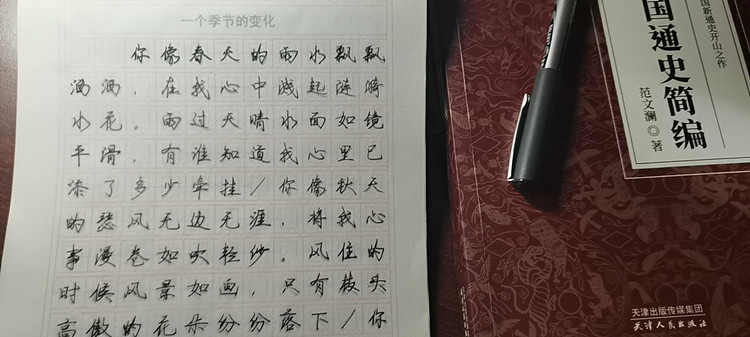 一个季节的变化
你像春天的雨水飘飘
洒洒,在我心中溅起涟漪
水花。雨过天晴水面如镜
平滑,有谁知道我心里已
添了多少牵挂/你像秋天
的瑟风无边无涯,将我心
事漫卷如吹轻纱。风住的
时候风景如画,只有枝头
高傲的花朵纷纷落下/你
国新通史开山之作
国通史简编
范文澜◎著
天津出版传媒集团
天津人民出版社